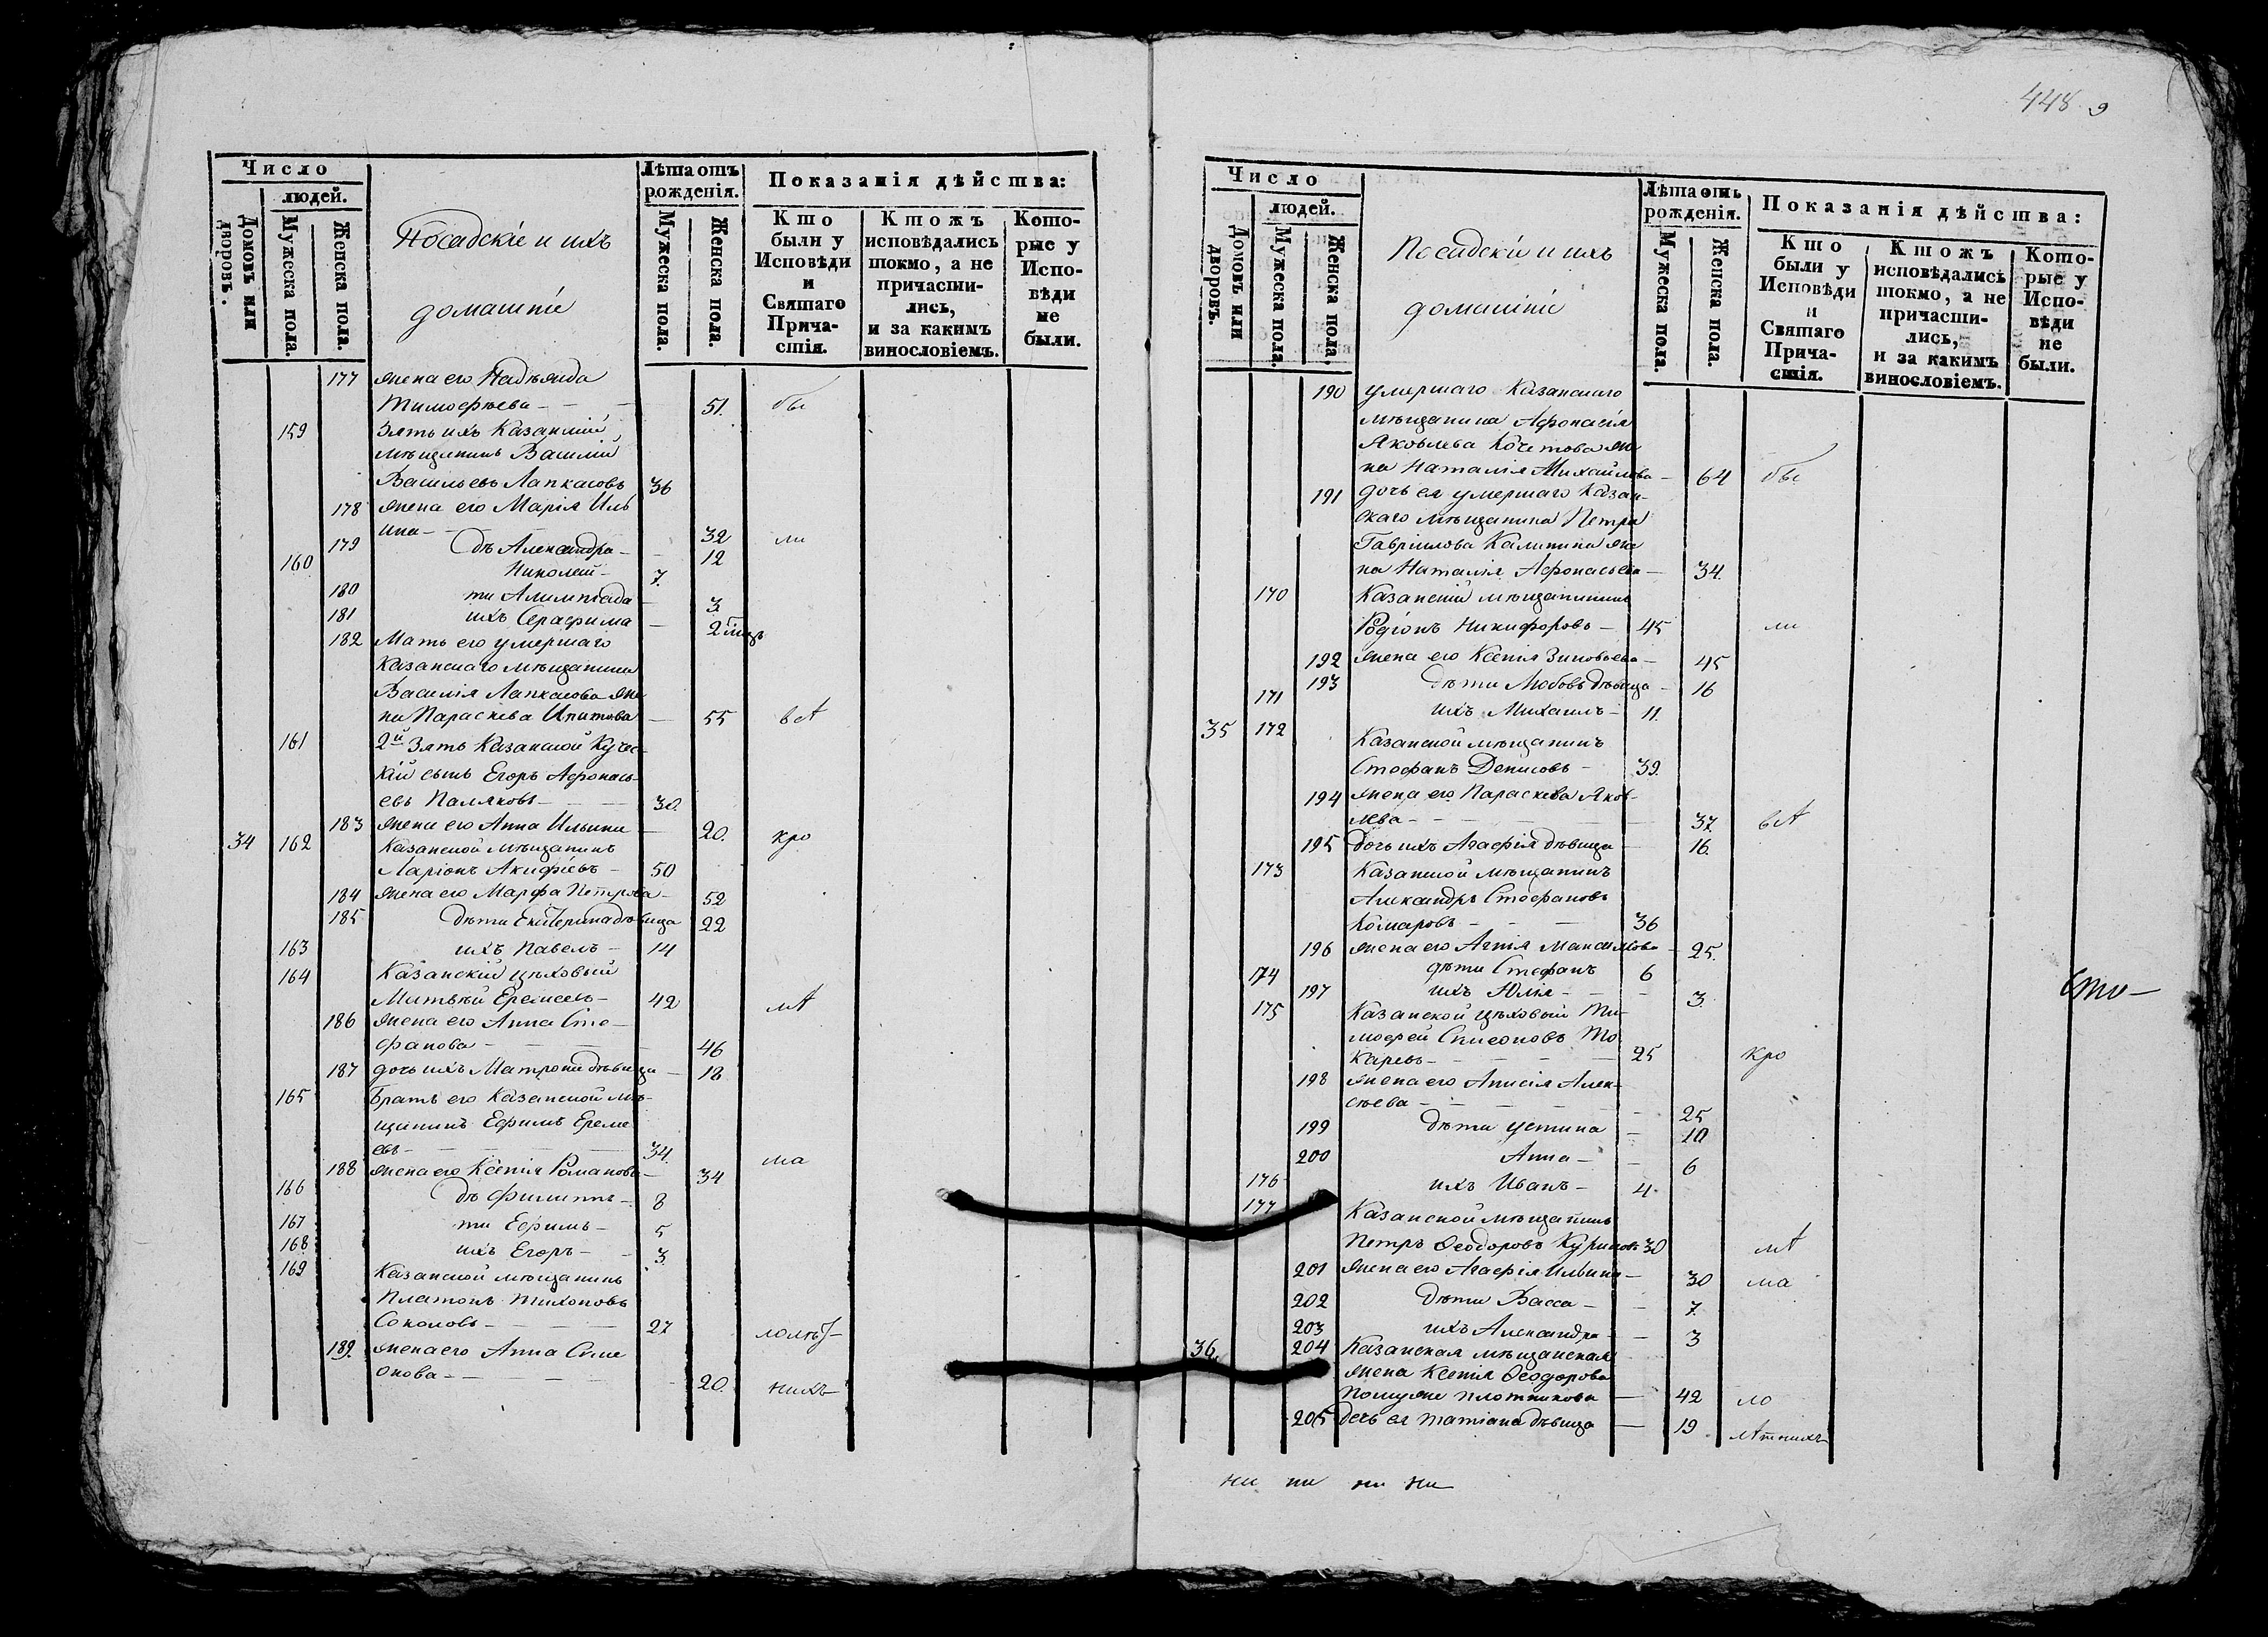 448 9
Число
людей.
Домовъ или дворовъ.
Мужеска пола.
Женска пола.
Посадскіе и ихъ
домашніе
Лѣта отъ рожденія.
Мужеска пола.
Женска пола.
Показанія дѣйства:
Кто были у Исповѣди и Святаго Причастія.
Ктожъ исповѣдались токмо, а не причастились, и за какимъ винословіемъ.
Которые у Исповѣди не были.
177 жена его Надѣжда
Тимофѣева - - - 51. бы
159 Зять ихъ Казанскій
мѣщанинъ Василій
Васильевъ Лапкасовъ 36
178 жена его Марія Иль
ина - - - 32 ли
179 дѣ Александра - 12
160 Николай - 7.
180 ти Алимпіада - 3.
181 ихъ Серафима - 2
182 Мать его умершаго
Казанскаго мѣщанина
Василія Лапкасова же
на Параскева Ипатова - 55 вст
161 2й Зять Казанской Купес-
кій сынъ Егоръ Афонась-
евъ Паляковъ - - - 30.
183 жена его Анна Ильина - 20. кро
34 162 Казанской мѣщанинъ
Ларіонъ Акифіевъ - 50
184 жена его Марфа Петрова - 52
185 дѣти Екатерина дѣвица 22
163 ихъ Павелъ - 14
164 Казанскій цѣховый
Матвѣй Еремеевъ - 42 мѣ
186 жена его Анна Сте-
фанова - - - 46
187 дочь ихъ Матрона дѣвица - 18
165 Братъ его Казанской мѣ-
щанинъ Ефимъ Ереме
евъ - - - 34. ма
188 жена его Ксенія Романова - 34
166 дѣ Филиппъ - 8
167 ти Ефимъ - 5
168 ихъ Егоръ - 3.
169 Казанской мѣщанинъ
Платонъ Тихоновъ
Соколовъ - - - 27
189. жена его Анна Симе
онова - - - 20. нихъ
Число
людей.
Домовъ или дворовъ.
Мужеска пола.
Женска пола.
Посадскіи и ихъ
домашніи
Лѣта отъ рожденія.
Мужеска пола.
Женска пола.
Показанія дѣйства:
Кто были у Исповѣди и Святаго Причастія.
Ктожъ исповѣдались токмо, а не причастились, и за какимъ винословіемъ.
Которые у Исповѣди не были.
190 умершаго Казанскаго
мѣщанина Афонасія
Яковлева Кочетова же
на Наталія Михайлова - 64 бы
191 дочь ея умершаго Казан-
скаго мѣщанина Петра
Гавріилова Калинина же
на Наталія Афонасьева - 34.
170 Казанскій мѣщанинъ
Родіонъ Никифоровъ - 45 ли
192 жена его Ксенія Зиновьева - 45
193 дѣти Любовь дѣвица - 16
171 ихъ Михаилъ - 11.
35 172 Казанской мѣщанинъ
Стефанъ Денисовъ - 39.
194 жена его Параскева Яков-
лева - - - 37. вст
195 дочь ихъ Агафія дѣвица - 16.
173 Казанской мѣщанинъ
Александръ Стефановъ
Комаровъ - - - 36
196 жена его Агнія Максимова - 25.
174 дѣти Стефанъ 6
197 ихъ Юлія - - - 3.
175 Казанской цѣховый Ти-
мофей Симеоновъ То
каревъ - - - 25 кро
198 жена его Анисія Алек-
сѣева - - - 25
199 дѣти Устина - 10
200 Анна - - 6
176 ихъ Иванъ - 4.
177 Казанской мѣщанинъ
Петръ Феодоровъ 30 мѣ
201 жена его Агафія Ильина - 30 ма
202 дѣти Васса - - 7.
203 ихъ Александра - - 3
36. 204 Казанская мѣщанская
жена Ксенія Феодорова
по мужѣ Плотникова - 42 ло
205 дочь ея Татіана дѣвица - 19 лѣтнихъ
ни ни ни ни